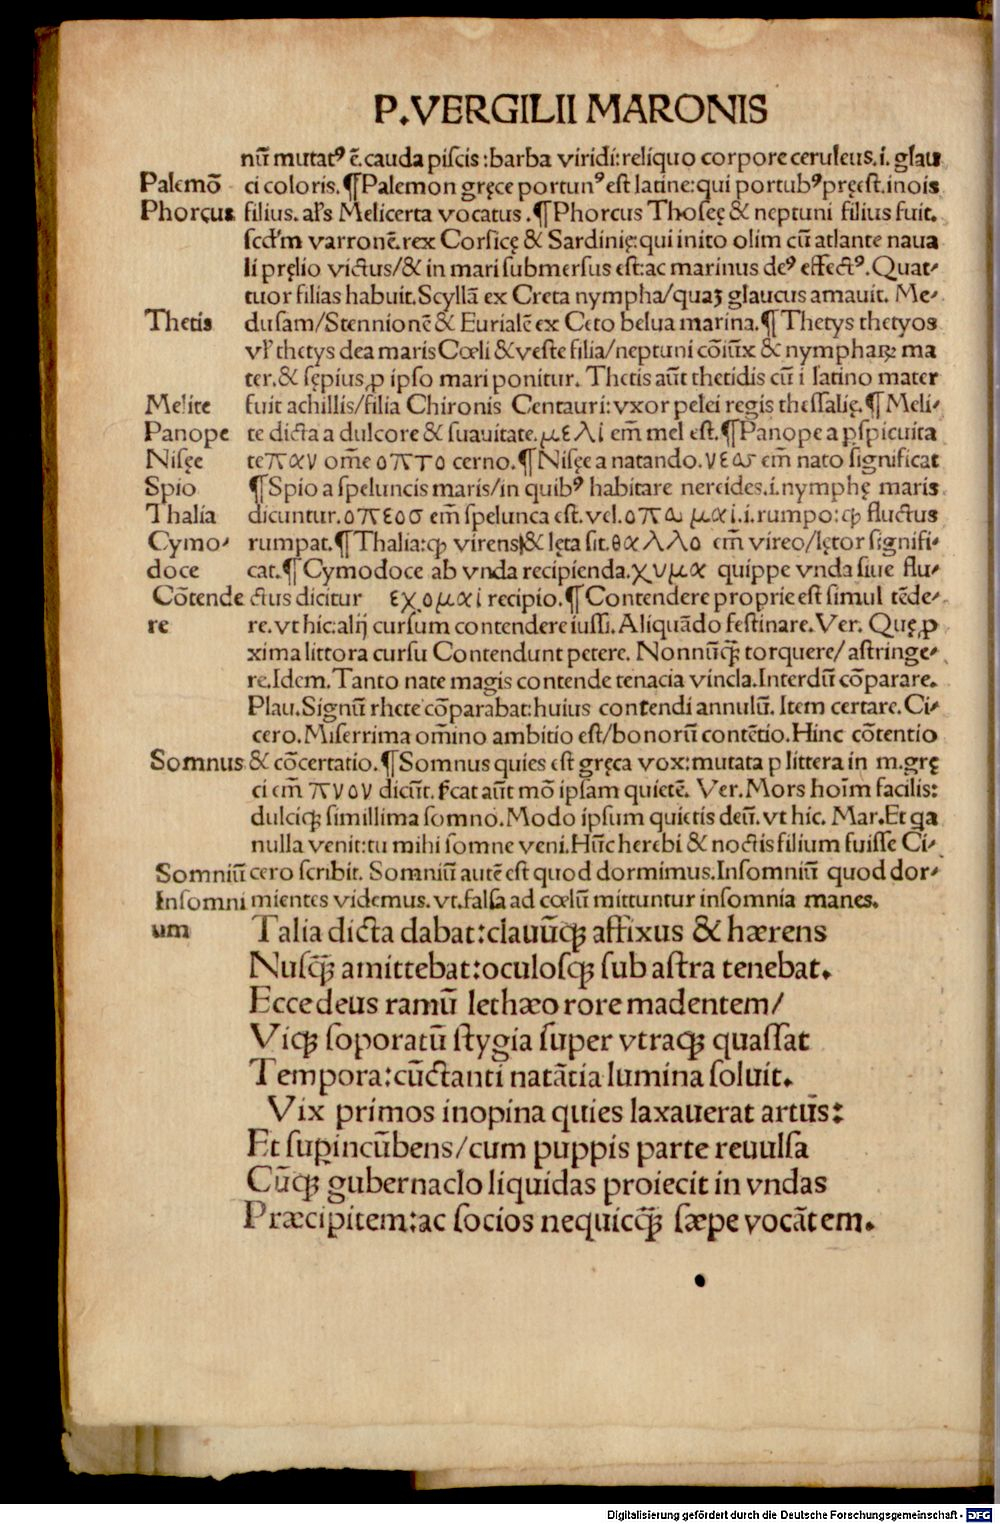 P.VERGILII MARONIS
nū mutatꝰ ē. cauda piscis : barba viridi: reliquo corpore ceruleus. i. glau
Palemō ci coloris. ¶Palemon gręce portunꝰ est latine: qui portubꝰ pręest. inois
Phorcus filius. al's Melicerta vocatus . ¶Phorcus Thoseę & neptuni filius fuit.
scd'm varronē. rex Corsicę & Sardinię: qui inito olim cū atlante naua
li pręlio victus/& in mari submersus est: ac marinus deꝰ effectꝰ. Quat⸗
tuor filias habuit. Scyllā ex Creta nympha/quaȝ glaucus amauit. Me⸗
Thetis dusam/Stennionē & Eurialē ex Ceto belua marina. ¶Thetys thetyos
vl' thetys dea maris Cœli & veste filia/neptuni cōiūx & nymphaꝝ ma
ter. & sępius ꝓ ipso mari ponitur. Thetis aūt thetidis cū i latino mater
Melite fuit achillis/filia Chironis Centauri: vxor pelei regis thessalię. ¶Meli⸗
Panope te dicta a dulcore & suauitate. μελi em̄ mel est. ¶Panope a ꝑspicuita
Nisęe te παν om̄e οπτο cerno. ¶Nisęe a natando. νεω em̄ nato significat
Spio ¶Spio a speluncis maris/in quibꝰ habitare nereides. i. nymphę maris
Thalia dicuntur. οπεοσ em̄ spelunca est. vel. οπω μαi. i. rumpo: ꝙ fluctus
Cymo⸗ rumpat. ¶Thalia: ꝙ virens & lęta sit. θαλλο em̄ vireo/lętor signifi⸗
doce cat. ¶Cymodoce ab vnda recipienda. χυμα quippe vnda siue flu⸗
Cōtende ctus dicitur εχομαi recipio. ¶Contendere proprie est simul tēde⸗
re re. vt hic: alij cursum contendere iussi. Aliquādo festinare. Ver. Quę ꝓ
xima littora cursu Contendunt petere. Nonnūꝙ̄ torquere/ astringe⸗
re. Idem. Tanto nate magis contende tenacia vincla. Interdū cōparare.
Plau. Signū rhete cōparabat: huius contendi annulū. Item certare. Ci⸗
cero. Miserrima om̄ino ambitio est/bonorū contētio. Hinc cōtentio
Somnus & cōcertatio. ¶Somnus quies est gręca vox: mutata p littera in m. grę
ci em̄ πνον dicūt. s'cat aūt mō ipsam quietē. Ver. Mors hoīm facilis:
dulciqꝫ simillima somno. Modo ipsum quietis deū. vt hic. Mar. Et ꝗa
nulla venit: tu mihi somne veni. Hūc herebi & noctis filium fuisse Ci⸗
Somniū cero scribit. Somniū autē est quod dormimus. Insomniū quod dor⸗
Insomni mientes videmus. vt. falsa ad cœlū mittuntur insomnia manes.
um Talia dicta dabat: clauūqꝫ affixus & hærens
Nusꝙ̄ amittebat: oculosqꝫ sub astra tenebat.
Ecce deus ramū lethæo rore madentem/
Viqꝫ soporatū stygia super vtraqꝫ quassat
Tempora: cūctanti natātia lumina soluit.
Vix primos inopina quies laxauerat artus:
Et suꝑincūbens/cum puppis parte reuulsa
Cūqꝫ gubernaclo liquidas proiecit in vndas
Præcipitem: ac socios nequicꝙ̄ sæpe vocātem.
Digitalisierung gefördert durch die Deutsche Forschungsgemeinschaft - DFG